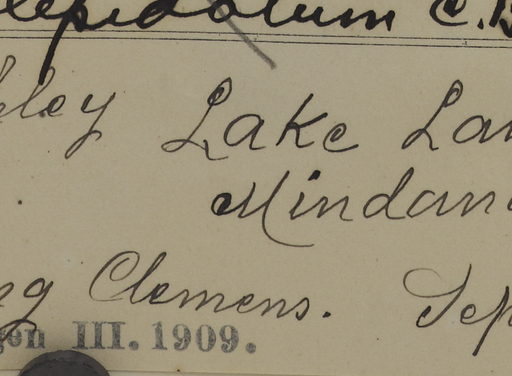 lepidotum C.B
ley Lake Lan
Mindan
ng Clemens. Sep
gen III. 1909.